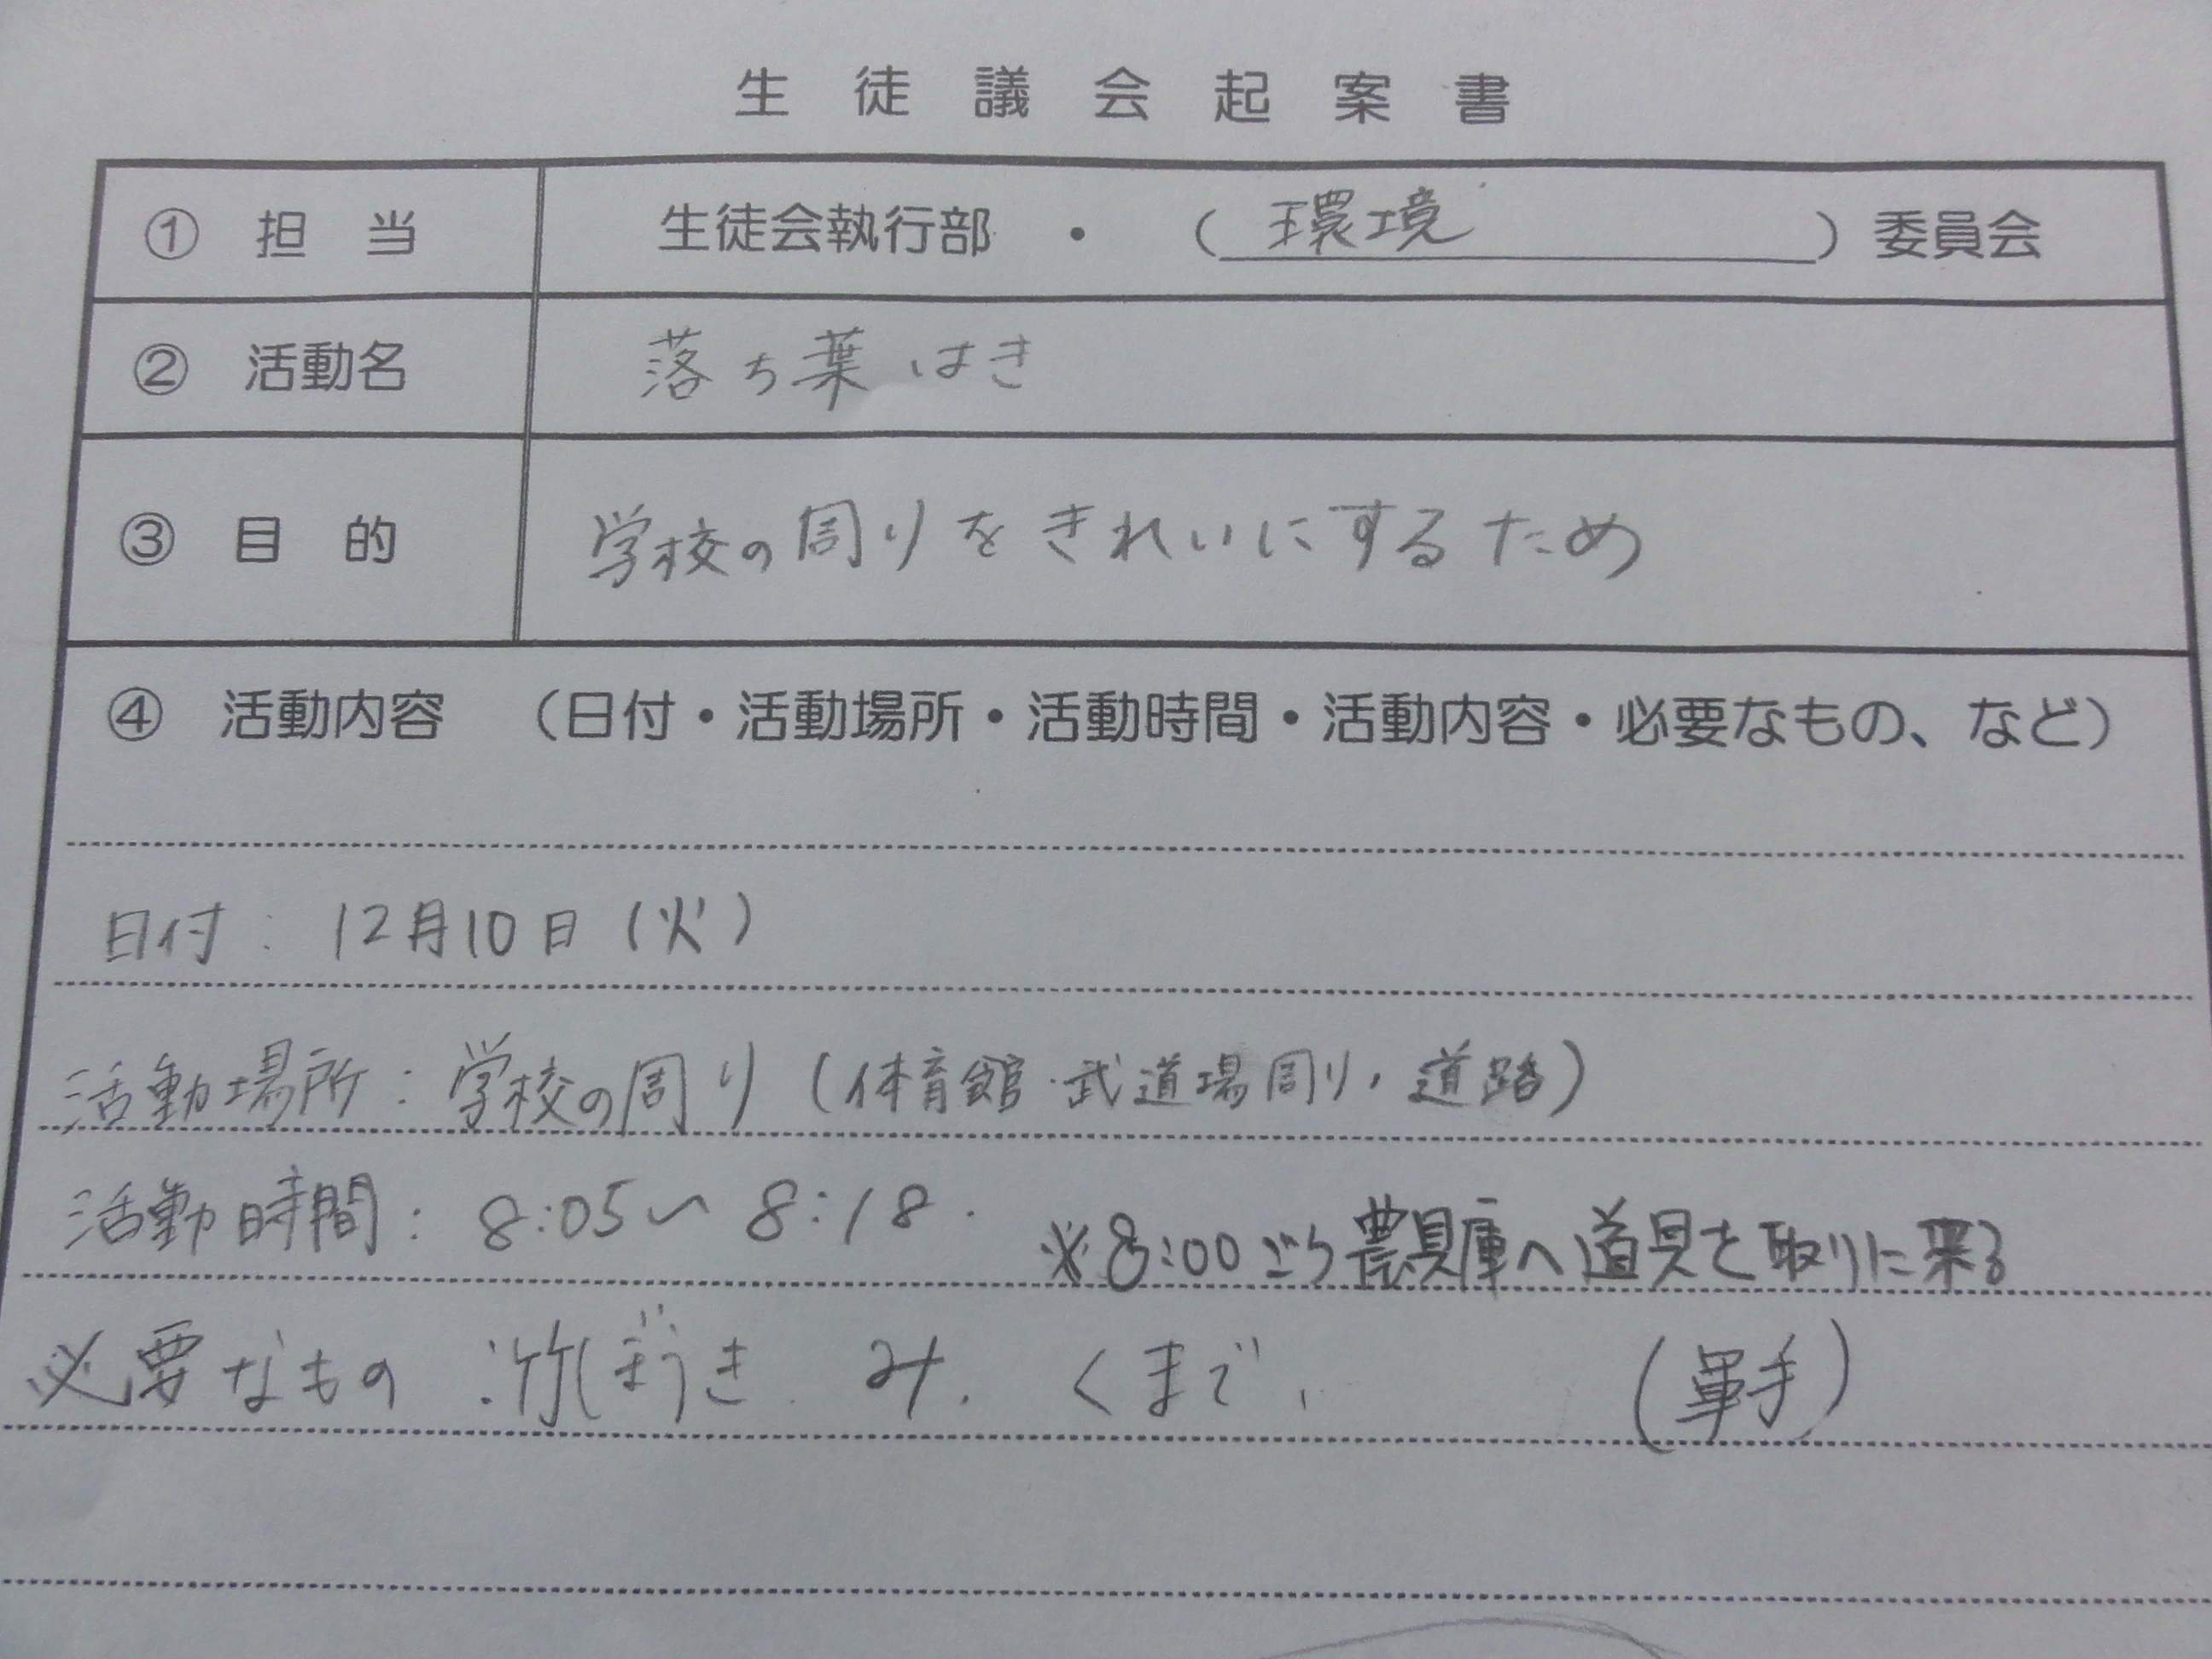 生徒議会起案書
① 担当 生徒会執行部 ・ (環境) 委員会
② 活動名 落ち葉はき
③ 目的 学校の周りをきれいにするため
④ 活動内容 (日付・活動場所・活動時間・活動内容・必要なもの、など)
日付: 12月10日(火)
活動場所:学校の周り(体育館・武道場周り,道路)
活動時間: 8:05〜8:18. ※8:00ごろ農具庫へ道具を取りに来る
必要なもの:竹ぼうき、み、くまで、 (軍手)